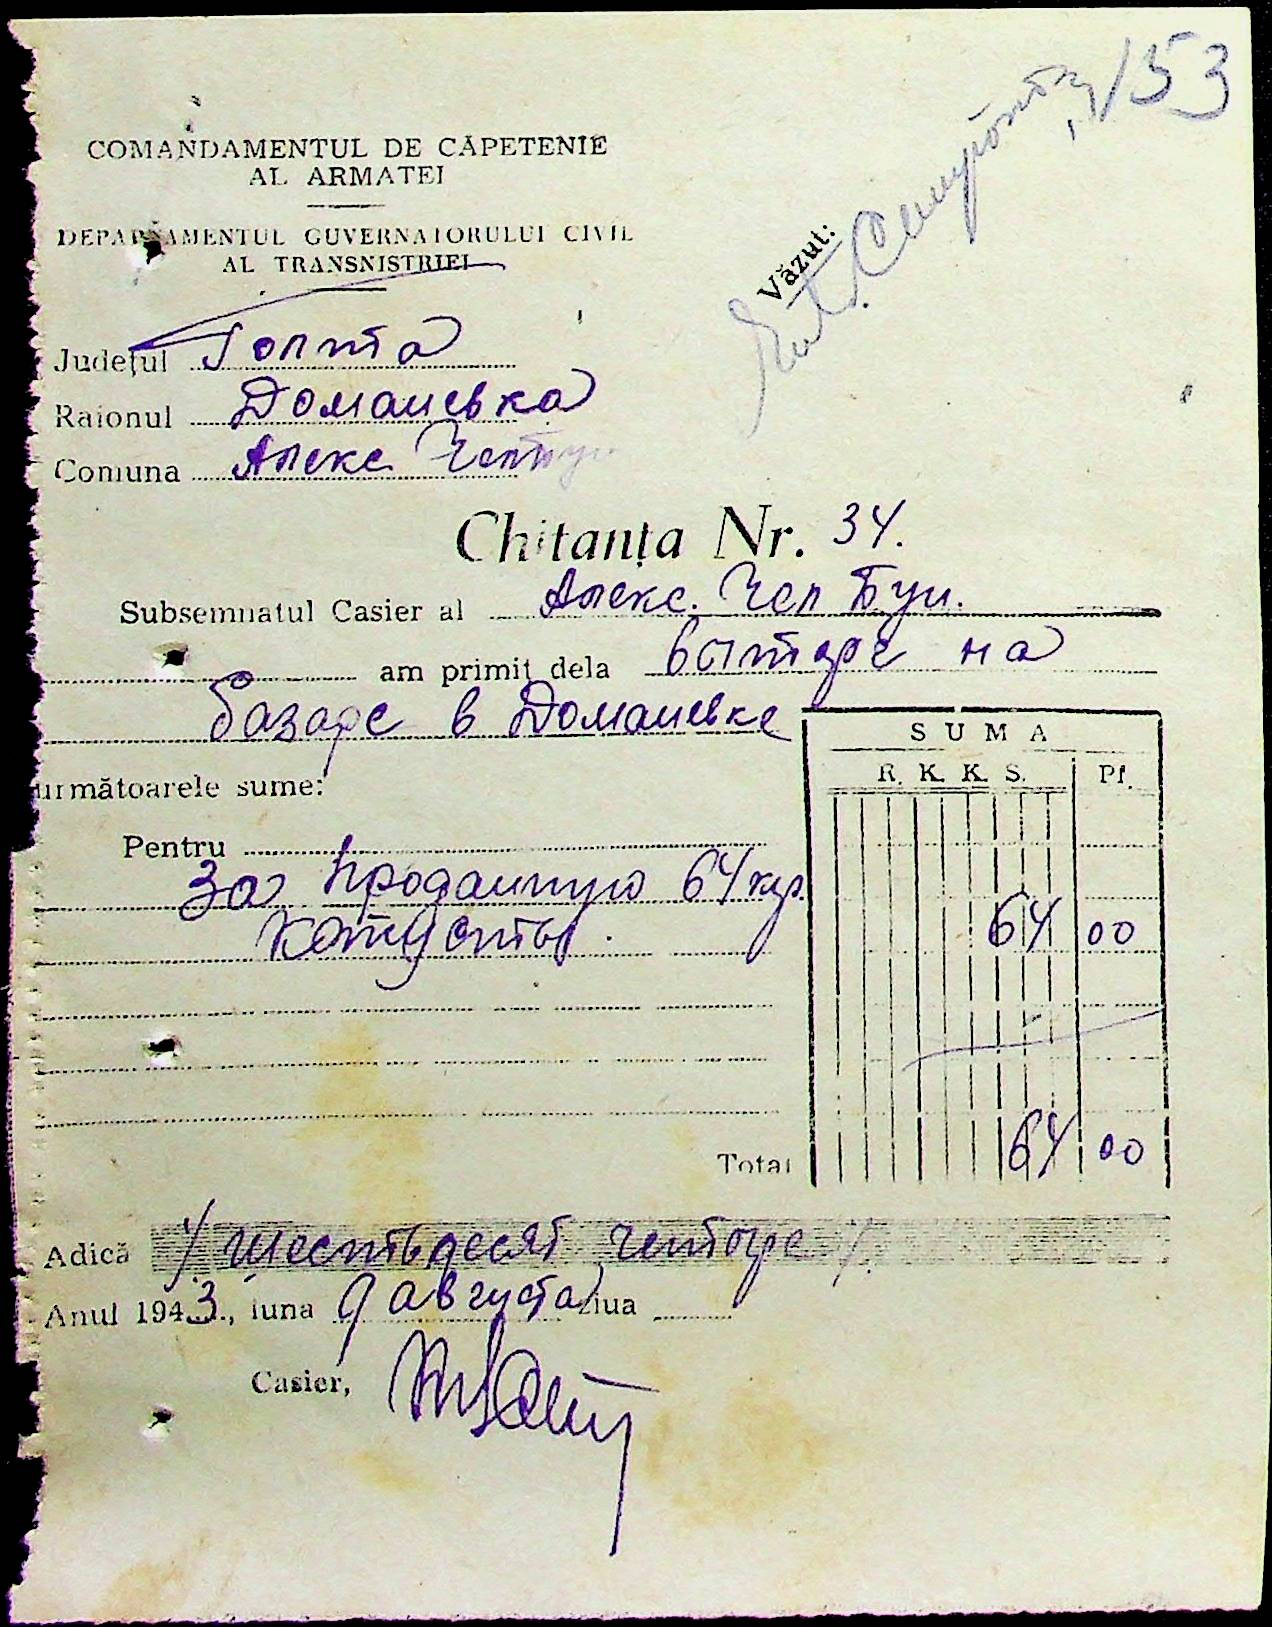 153
COMANDAMENTUL DE CĂPETENIE
AL ARMATEI
DEPARTAMENTUL GUVERNATORULUI CIVIL
AL TRANSNISTRIEI
Văzut:
Județul Голта
Raionul Доманевка
Comuna Алекс.
Chitanța Nr. 34.
Subsemnatul Casier al Алекс. Чел Бун.
am primit dela выторг на
базаре в Доманевке
următoarele sume:
SUMA
R. K. K. S. Pf.
Pentru
За проданную 64 кгр.
капусты. 64 00
Total 64 00
Adică / шестьдесят четыре /
Anul 1943., luna 9 августа ziua
Casier,